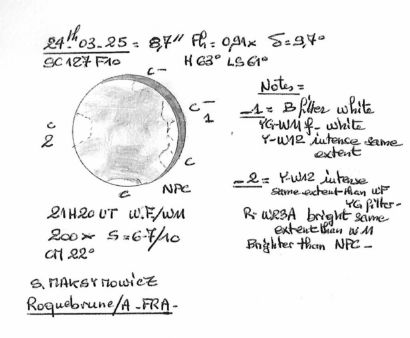 24th 03.25 = 8,7" Ph = 0,91x δ = 9,7°
SC 127 F10 H 63° LS 61°
C -
C -
1
C
2
C
C
NPC
Notes =
1 = B filter white
YG-W11 f- white
Y-W12 intence same
extent
2 = Y-W12 intense
same extent than WF
YG filter -
R- W23A bright same
extent than W11
Brighter than NPC -
21H20 UT W.F/W11
200x S = 6-7/10
CM 22°
S. MAKSYMOWICZ
Roquebrune/A - FRA -